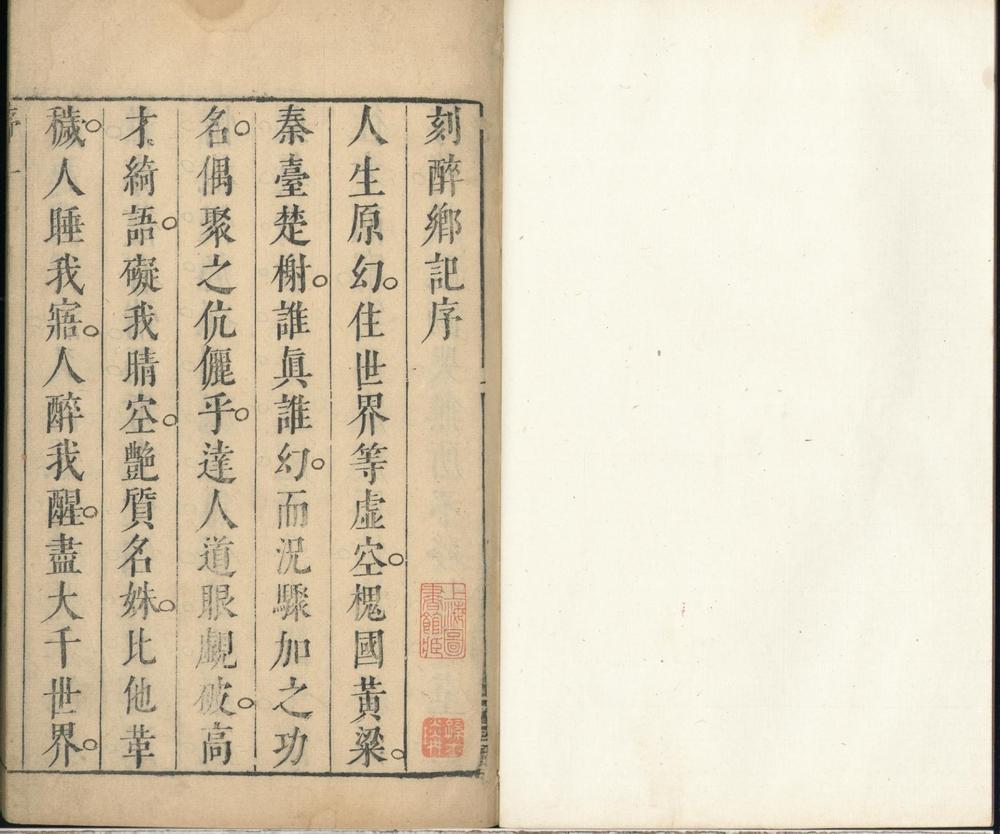 刻醉鄉記序
人生原幻。住世界等虛空。槐國黃粱。
秦臺楚榭。誰眞誰幻。而況驟加之功
名。偶聚之伉儷乎。達人道眼覷破。高
才綺語。礙我晴空。艷質名姝。比他革
穢。人睡我寤。人醉我醒。盡大千世界。
序 一
上海圖書館藏